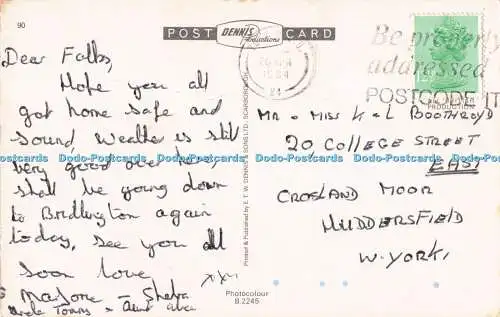 90
POST DENNIS Productions CARD
Dear Folks,
Hope you all
got home safe and
sound, weather is still
very good over here,
shall be going down
to Bridlington again
today, see you all
soon love
Marjorie - Sheba
Uncle Tommy - Aunt
xxx
Printed & Published by E. T. W. DENNIS & SONS LTD., SCARBOROUGH
Photocolour
B.2245
1984
Be properly
addressed
POSTCODE IT
PRODUCTION
Mr & Miss K & L BOOTHROYD
29, COLLEGE STREET
EAST,
CROSLAND MOOR
HUDDERSFIELD
W. YORK,
Dodo-Postcards Dodo-Postcards Dodo-Postcards Dodo-Postcards Dodo-Postcards